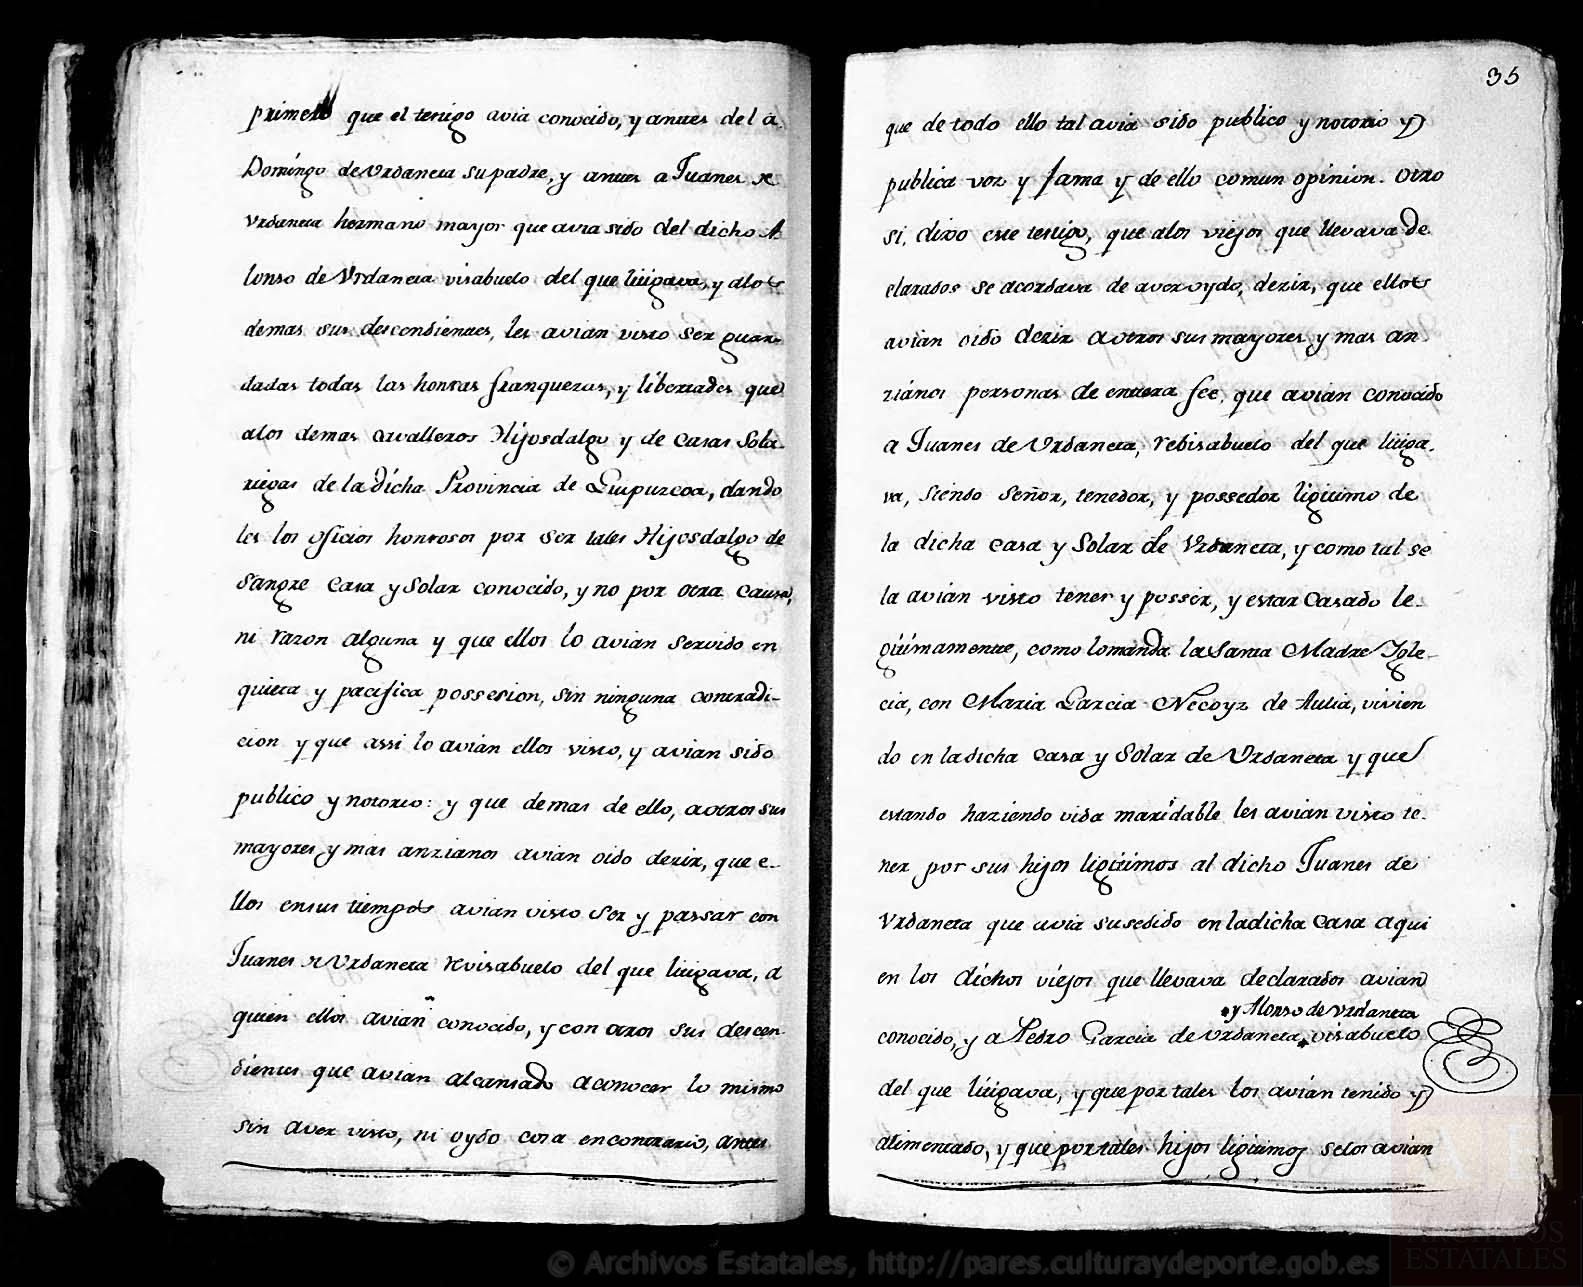 primero que el testigo avia conocido, y antes del a
Domingo de Urdaneta su padre, y antes a Juanes de
Urdaneta hermano mayor que avia sido del dicho A
lonso de Urdaneta visabuelo del que litigava, y alos
demas sus descendientes, les avian visto ser guar-
dadas todas las honras franquezas, y libertades que
alos demas cavalleros Hijosdalgo y de casas Sola-
riegas de la dicha Provincia de Guipuzcoa, dando
les los oficios honrosos por ser tales Hijosdalgo de
sangre casa y Solar conocido, y no por otra causa,
ni razon alguna y que ellos lo avian servido en
quieta y pacifica possesion, sin ninguna contradi-
cion y que assi lo avian ellos visto, y avian sido
publico y notorio: y que demas de ello, a otros sus
mayores, y mas anzianos avian oido dezir, que e-
llos en sus tiempos avian visto ser y passar con
Juanes de Urdaneta revisabuelo del que litigava, a
quien ellos avian conocido, y con otros sus descen
dientes que avian alcansado a conocer lo mismo
sin aver visto, ni oydo cosa en contrario, antes
35
que de todo ello tal avia sido publico y notorio y
publica voz y fama y de ello comun opinion. Otro
si, dixo este testigo, que alos viejos que llevava de
clarados se acordava de aver oydo, dezir, que ellos
avian oido dezir a otros sus mayores, y mas an
zianos personas de entera fee, que avian conocido
a Juanes de Urdaneta, rebisabuelo del que litiga-
va, siendo Señor, tenedor, y possedor ligitimo de
la dicha casa y Solar de Urdaneta, y como tal se
la avian visto tener y posser, y estar casado le-
gitimamente, como lo manda la Santa Madre Igle-
cia, con Maria Garcia Necoyz de Aulia, vivien
do en la dicha casa y Solar de Urdaneta y que
estando haziendo vida maridable les avian visto te-
ner por sus hijos ligitimos al dicho Juanes de
Urdaneta que avia susedido en la dicha casa a qui
en los dichos viejos que llevava declarados avian
y Alonso de Urdaneta
conocido, y a Pedro Garcia de Urdaneta visabuelo
del que litigava, y que por tales los avian tenido y
alimentado, y que por tales hijos ligitimos selos avian
© Archivos Estatales, http://pares.culturaydeporte.gob.es
ESTATALES